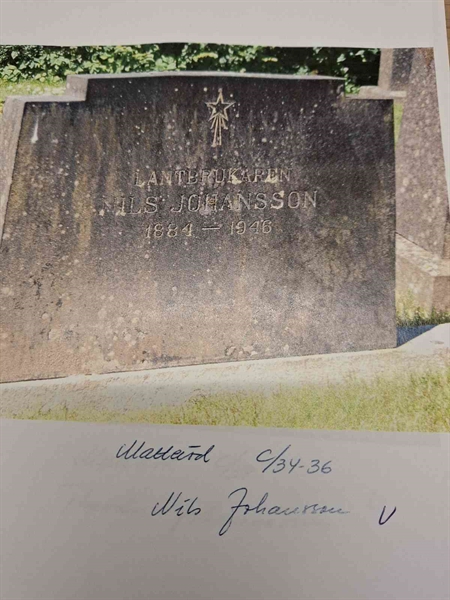 LANTBRUKAREN
NILS JOHANSSON
1884 — 1946
C/34-36
Nils Johansson V